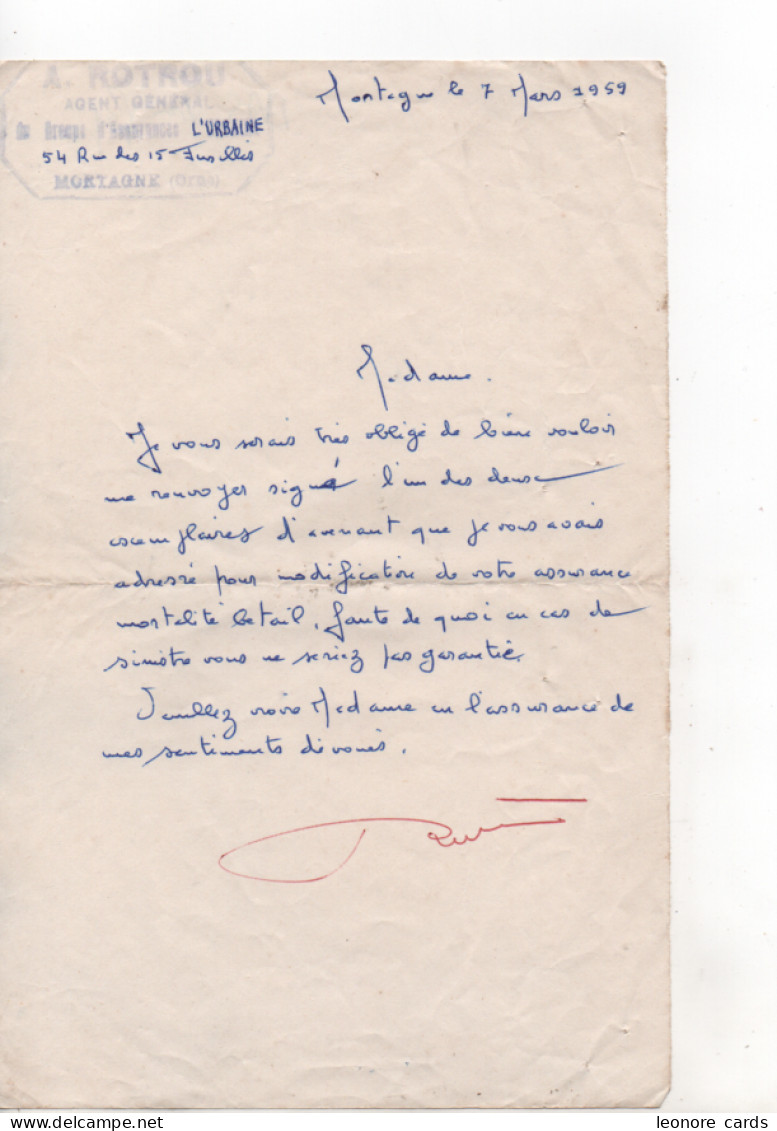 A. ROTROU
AGENT GENERAL
Du Groupe d'Assurances L'URBAINE
54 Rue des 15 Fusillés
MORTAGNE (Orne)
Mortagne le 7 Mars 1959
Madame.
Je vous serais très obligé de bien vouloir
me renvoyer signé l'un des deux
exemplaires d'avenant que je vous avais
adressé pour modification de votre assurance
mortalité bétail, faute de quoi en cas de
sinistre vous ne seriez pas garantie.
Veuillez croire Madame en l'assurance de
mes sentiments dévoués.
leonore cards